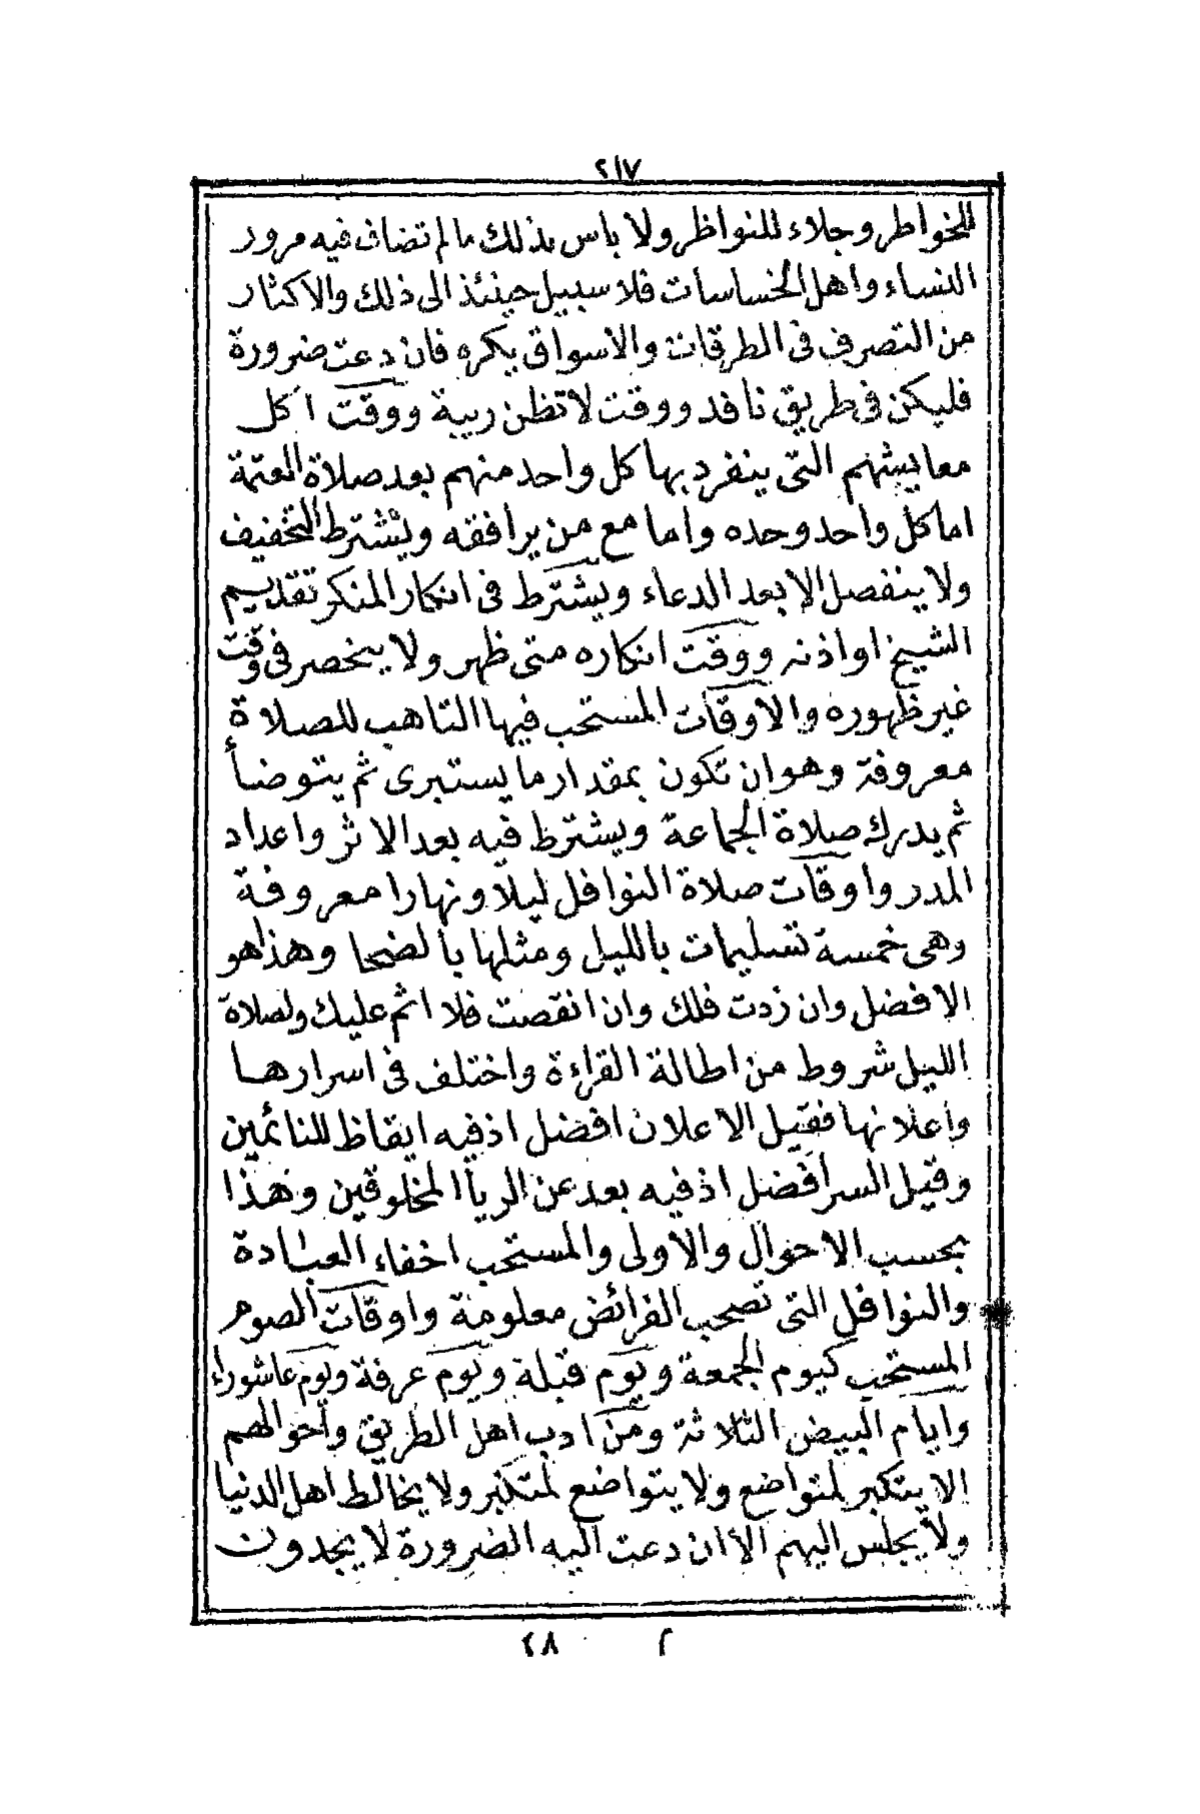 ٢١٧
للخواطر وجلاء للنواظر ولا باس بذلك مالم تضاف فيه مرور
النساء واهل الخساسات فلا سبيل حينئذ الى ذلك والاكثار
من التصرف فى الطرقات والاسواق يكره فان دعت ضرورة
فليكن فى طريق نافد ووقت لا تظن ريبة ووقت اكل
معايشهم التى ينفرد بها كل واحد منهم بعد صلاة العتمة
اما كل واحد وحده واما مع من يرافقه ويشترط التخفيف
ولا ينفصل الا بعد الدعاء ويشترط فى انكار المنكر تقديم
الشيخ او اذنه ووقت انكاره متى ظهر ولا ينحصر فى وقت
غير ظهوره والاوقات المستحب فيها التاهب للصلاة
معروفة وهو ان تكون بمقدار ما يستبرى ثم يتوضأ
ثم يدرك صلاة الجماعة ويشترط فيه بعد الاثر واعداد
المدر واوقات صلاة النوافل ليلا ونهارا معروفة
وهى خمسة تسليمات بالليل ومثلها بالضحا وهذا هو
الافضل وان زدت فلك وان انقصت فلا اثم عليك ولصلاة
الليل شروط من اطالة القراءة واختلف فى اسرارها
واعلانها فقيل الاعلان افضل اذ فيه ايقاظ للنائمين
وقيل السر افضل اذ فيه بعد عن الريا المخلوقين وهذا
بحسب الاحوال والاولى والمستحب اخفاء العبادة
والنوافل التى تصحب الفرائض معلومة واوقات الصوم
المستحب كيوم الجمعة ويوم قبلة ويوم عرفة ويوم عاشوراء
وايام البيض الثلاثة ومن ادب اهل الطريق واحوالهم
الا يتكبر لمتواضع ولا يتواضع لمتكبر ولا يخالط اهل الدنيا
ولا يجلس اليهم الا ان دعت اليه الضرورة لا يجدون
٢ ٢٨